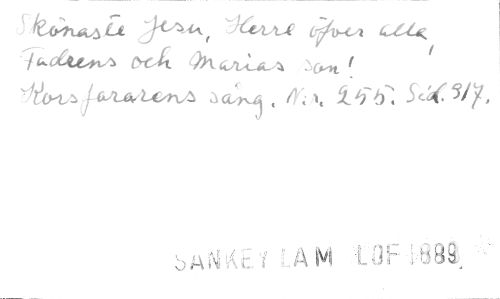 Skönaste Jesu, Herre öfver alla,
Fadrens och Marias son!
Korsfararens sång. N:r. 255. Sid. 317.
SANKEY LAM LOF 1889